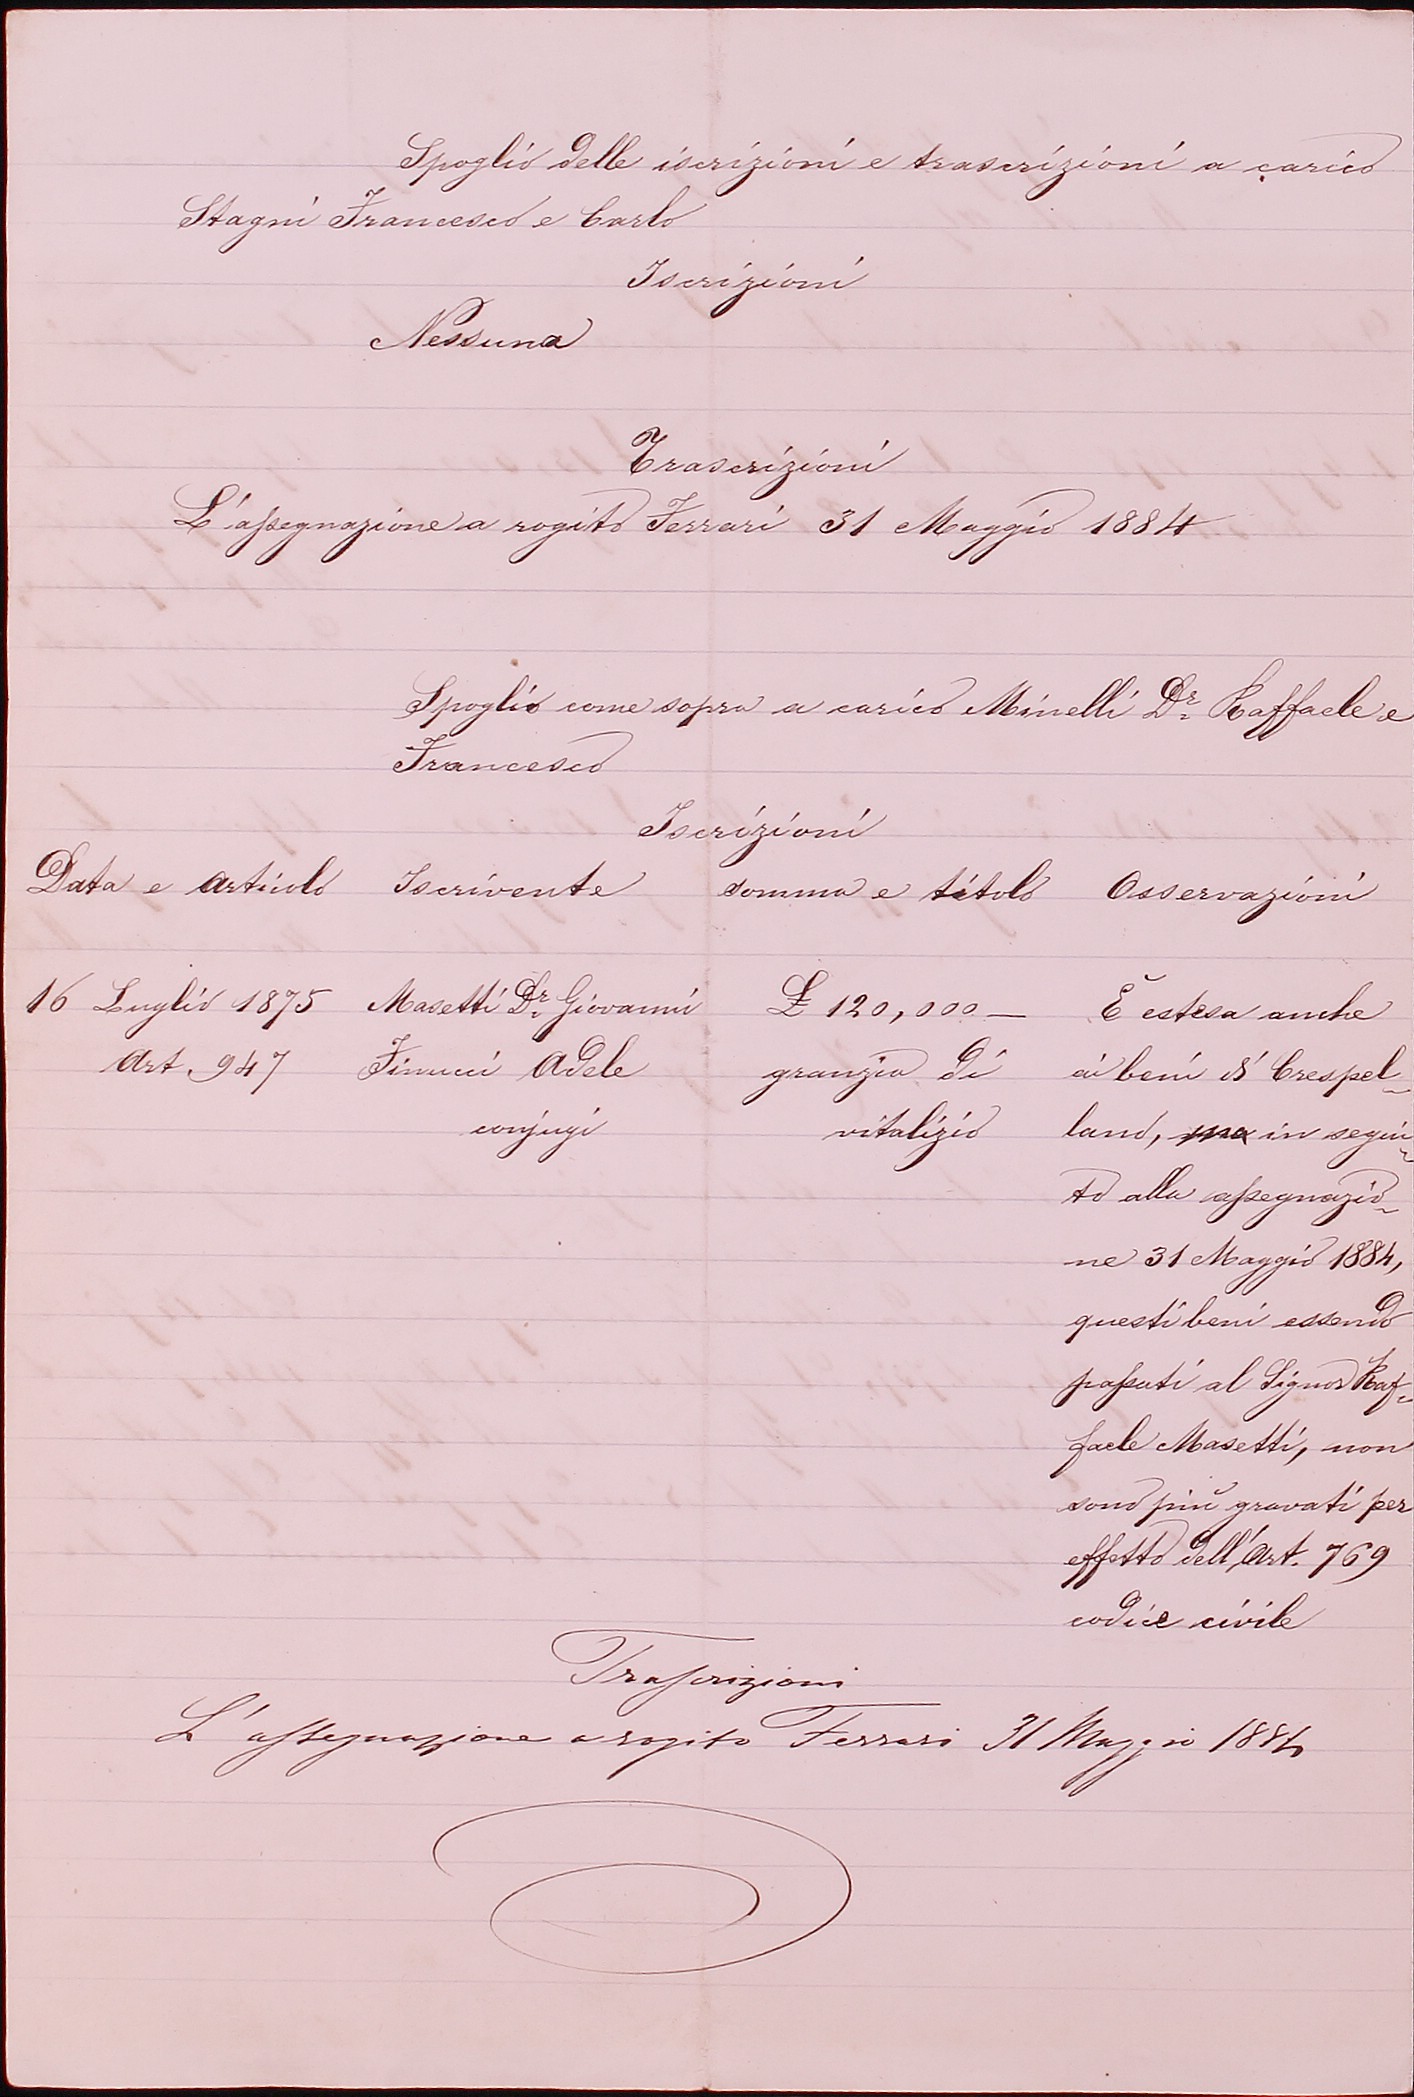 Spoglio delle iscrizioni e trascrizioni a carico
Stagni Francesco e Carlo
Iscrizioni
Nessuna
Trascrizioni
L'assegnazione a rogito Ferrari 31 Maggio 1884
Spoglio come sopra a carico Minelli Dr. Raffaele e
Francesco
Iscrizioni
Data e articolo Iscrivente somma e titolo Osservazioni
16 Luglio 1875 Masetti Dr. Giovanni £ 120,000 — È estesa anche
Art. 947 Finucci Adele granzia di ai beni di Crespel-
conjugi vitalizio lano, ma in segui-
to alla assegnazio-
ne 31 Maggio 1884,
questi beni essendo
passati al Signor Raf-
faele Masetti, non
sono più gravati per
effetto dell'Art. 769
codice civile
Trascrizioni
L'assegnazione a rogito Ferrari 31 Maggio 1884